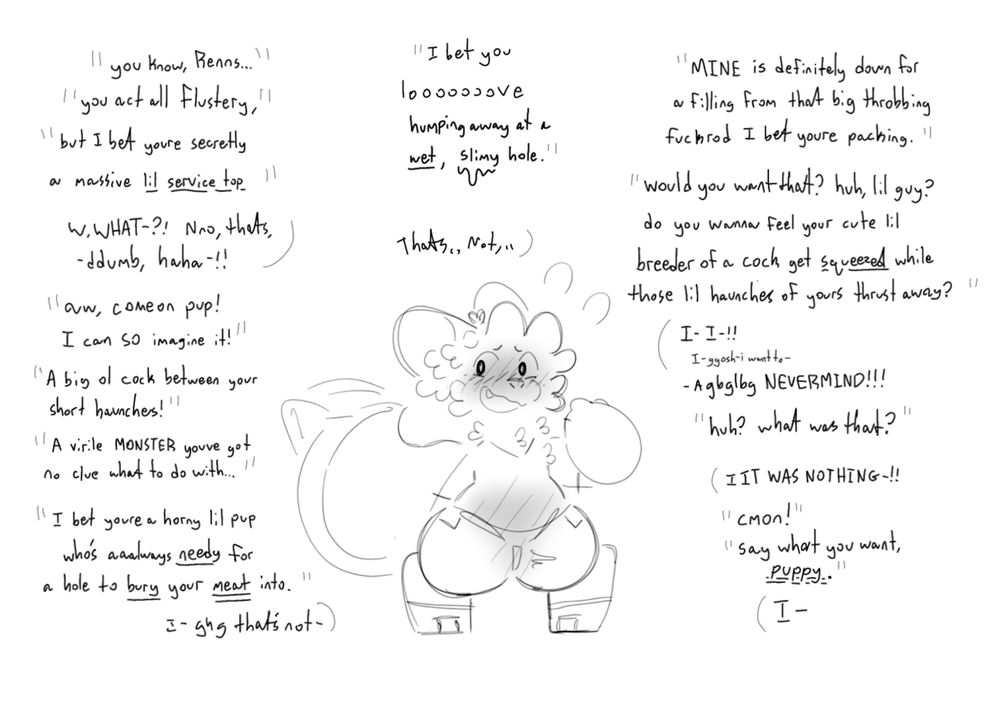 "you know, Renns..."
"you act all flustery,"
"but I bet youre secretly
a massive lil service top"
W,WHAT-?! Nno, thats,
-ddumb, haha-!!)
"aw, come on pup!
I can SO imagine it!"
"A big ol cock between your
short haunches!"
"A virile MONSTER youve got
no clue what to do with..."
"I bet youre a horny lil pup
who's aaalways needy for
a hole to bury your meat into."
I- ghg that's not-)
"I bet you
looooooove
humping away at a
wet, slimy hole."
Thats,, Not,,,)
"MINE is definitely down for
a filling from that big throbbing
fuckrod I bet youre packing."
"would you want that? huh, lil guy?
do you wanna feel your cute lil
breeder of a cock get squeezed while
those lil haunches of yours thrust away?"
(I- I-!!
I-ggosh-i want to-
-Agbglbg NEVERMIND!!!
"huh? what was that?"
(I IT WAS NOTHING-!!
"cmon!"
"say what you want,
puppy."
(I-